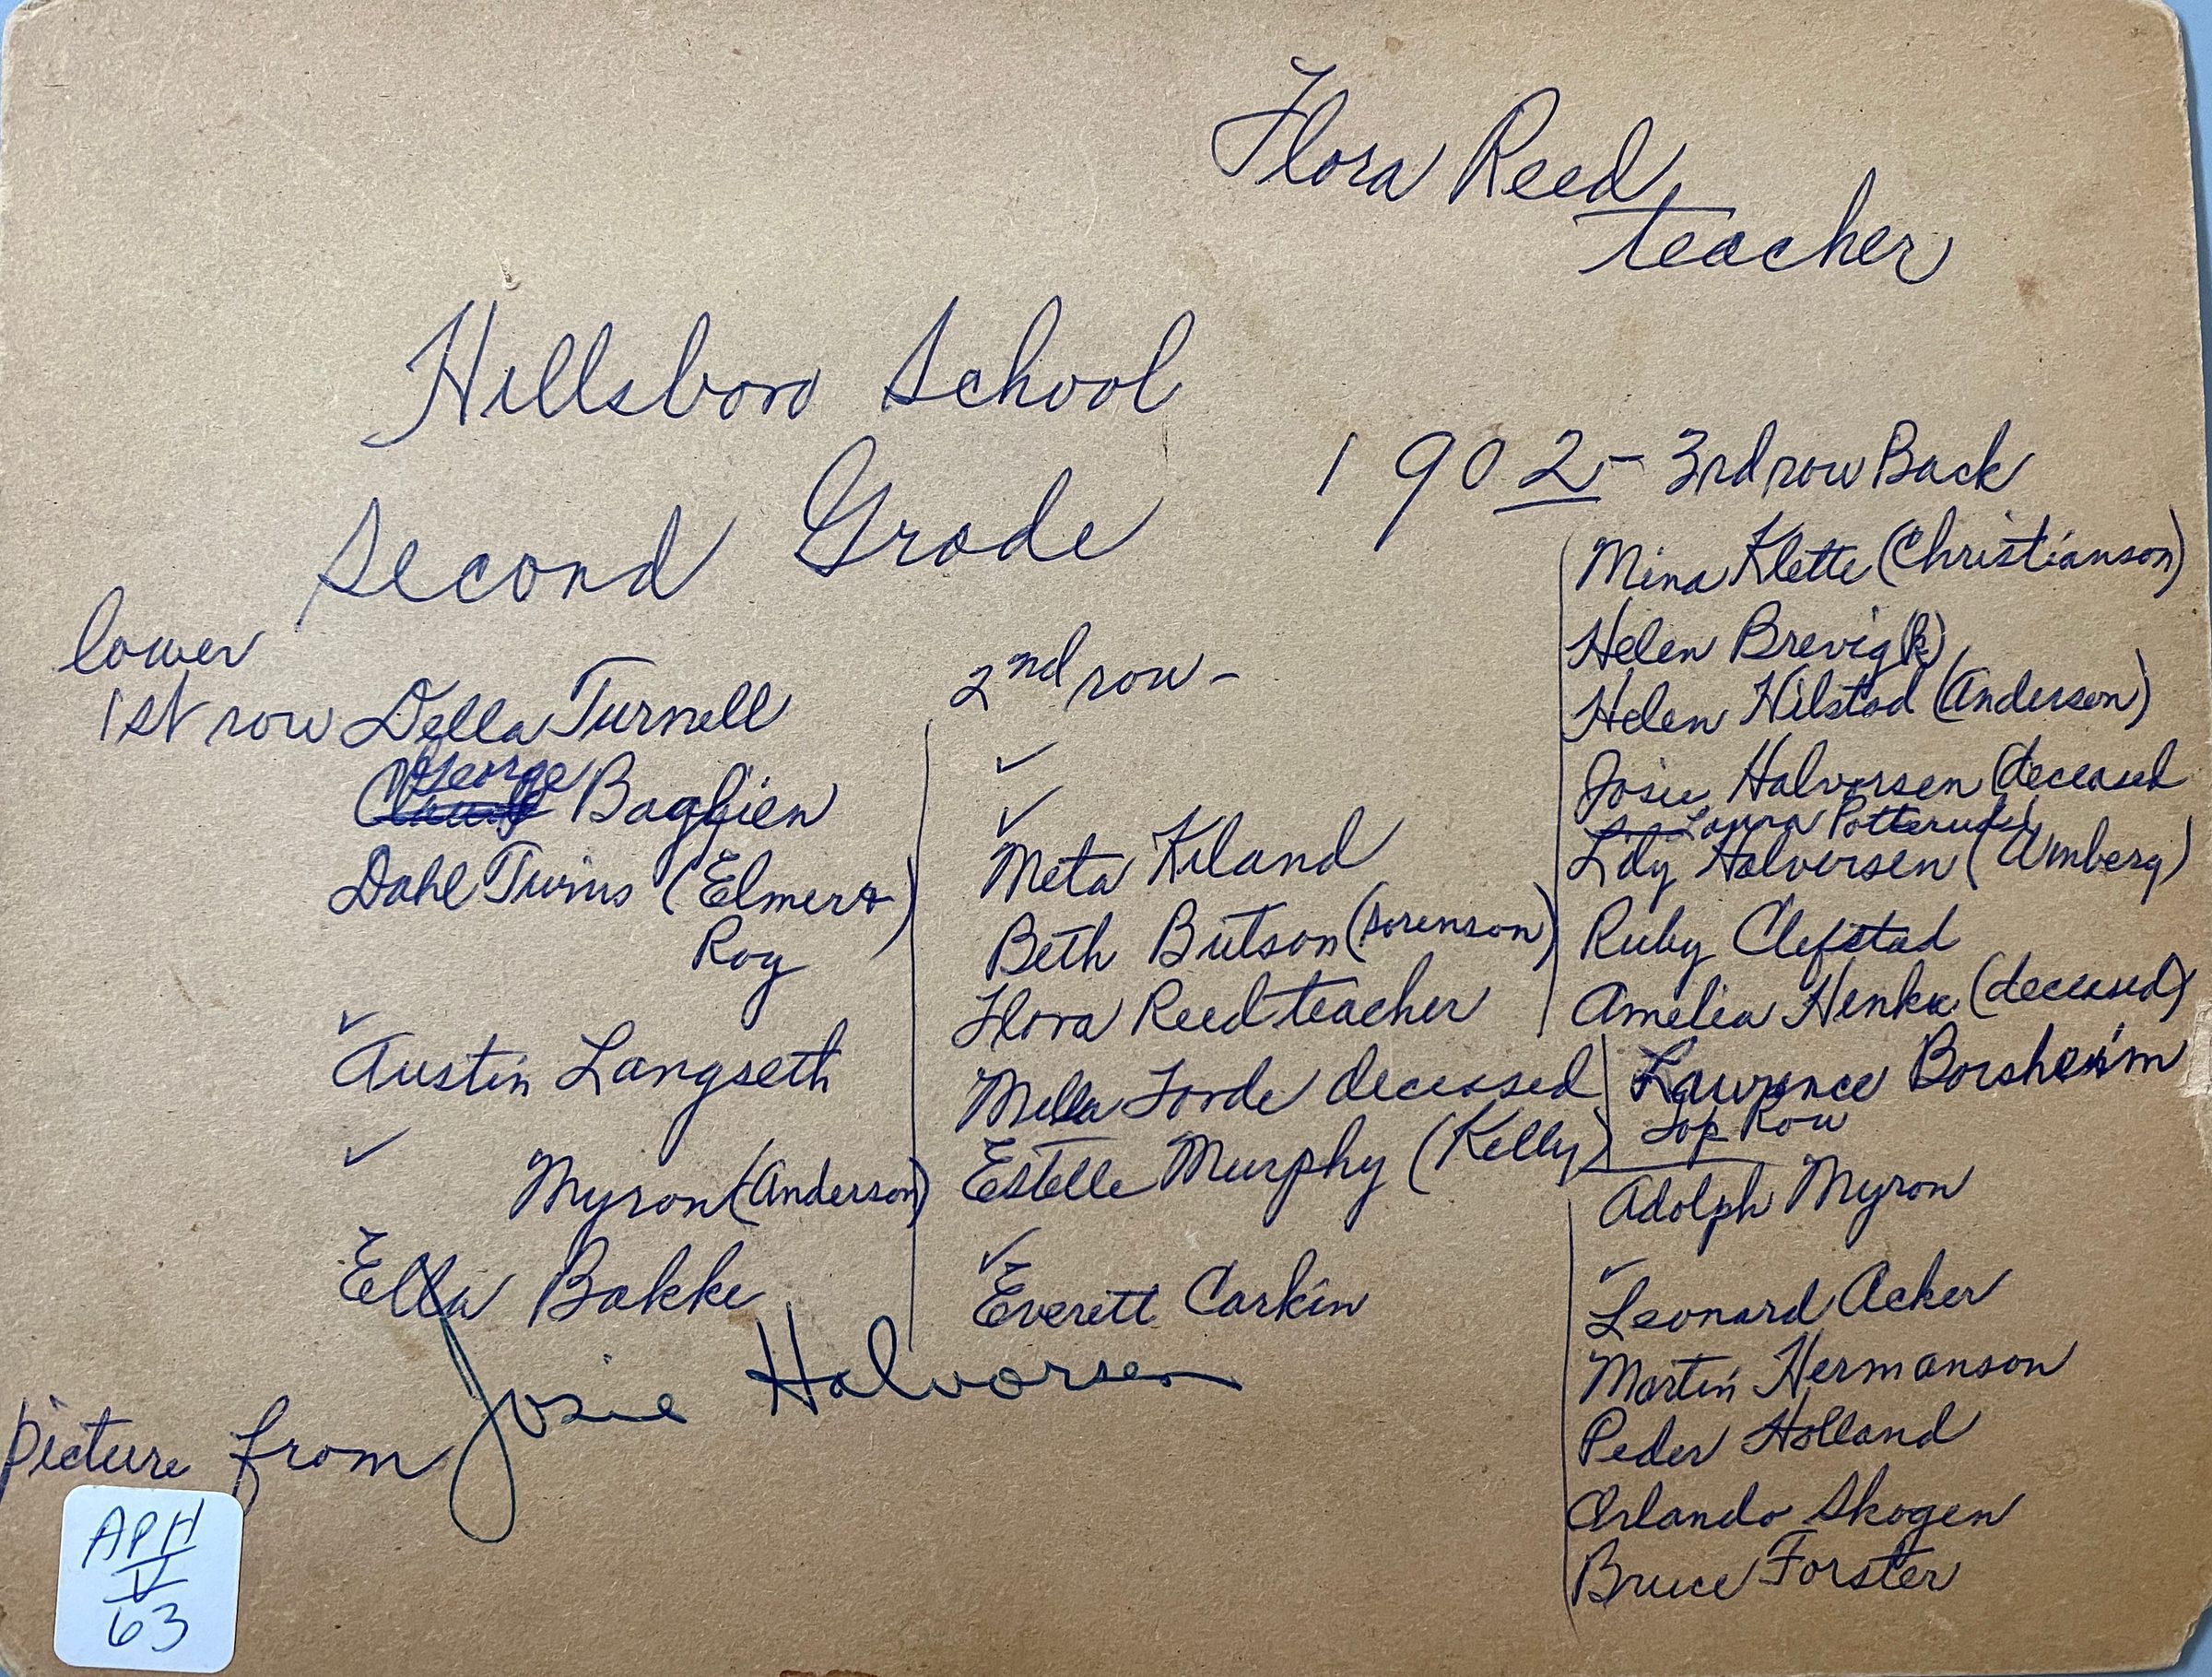 Flora Reed
teacher
Hillsboro School
Second Grade
1902 - 3rd row Back
lower
1st row Della Turnell
George Bagfien
Dahl Twins (Elmer &
Roy)
✓
Austin Langseth
✓
Myron (Anderson)
Ella Bakke
2nd row -
✓
✓
Meta Kiland
Beth Butson (Sorenson)
Flora Reed teacher
Mella Forde deceased
Estelle Murphy (Kelly)
✓
Everett Carkin
Mina Klette (Christianson)
Helen Brevig(k)
Helen Hilstad (Anderson)
Josie Halvorsen (deceased
Potterud
Lidy Halvorsen (Umberg)
Ruby Clefstad
Amelia Henke (deceased)
Lawrence Borsheim
Top Row
Adolph Myron
✓
Leonard Acker
Martin Hermanson
Peder Holland
Orlando Skogen
Bruce Forster
picture from Josie Halvorsen
APH
V
63